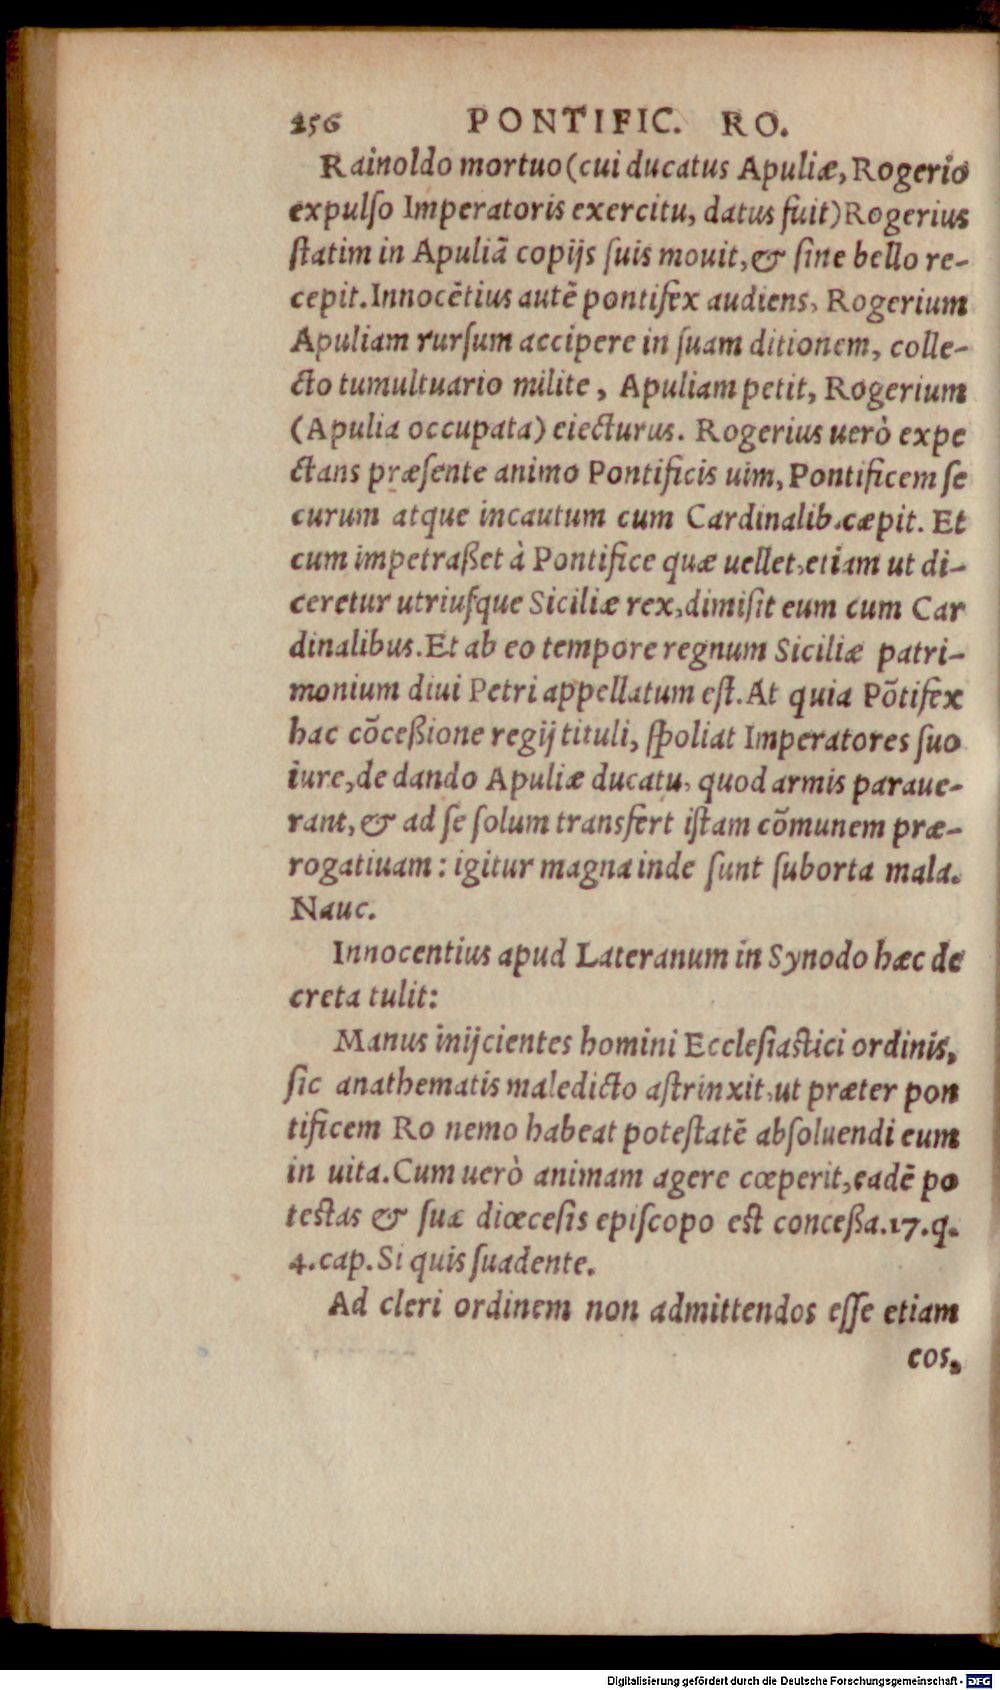 256 PONTIFIC. RO.
Rainoldo mortuo (cui ducatus Apuliæ, Rogerio
expulſo Imperatoris exercitu, datus fuit) Rogerius
ſtatim in Apuliã copijs ſuis mouit, & ſine bello re-
cepit. Innocẽtius autẽ pontifex audiens, Rogerium
Apuliam rurſum accipere in ſuam ditionem, colle-
cto tumultuario milite, Apuliam petit, Rogerium
(Apulia occupata) eiecturus. Rogerius uerò expe
ctans præſente animo Pontificis uim, Pontificem ſe
curum atque incautum cum Cardinalib. cæpit. Et
cum impetraßet à Pontifice quæ uellet, etiam ut di-
ceretur utriuſque Siciliæ rex, dimiſit eum cum Car
dinalibus. Et ab eo tempore regnum Siciliæ patri-
monium diui Petri appellatum eſt. At quia Põtifex
hac cõceßione regij tituli, ſpoliat Imperatores ſuo
iure, de dando Apuliæ ducatu, quod armis paraue-
rant, & ad ſe ſolum transfert iſtam cõmunem præ-
rogatiuam: igitur magna inde ſunt ſuborta mala.
Nauc.
Innocentius apud Lateranum in Synodo hæc de
creta tulit:
Manus inijcientes homini Eccleſiaſtici ordinis,
ſic anathematis maledicto aſtrinxit, ut præter pon
tificem Ro nemo habeat poteſtatẽ abſoluendi eum
in uita. Cum uerò animam agere cœperit, eadẽ po
teſtas & ſuæ diœceſis epiſcopo eſt conceßa. 17. q.
4. cap. Si quis ſuadente.
Ad cleri ordinem non admittendos eſſe etiam
eos,
Digitalisierung gefördert durch die Deutsche Forschungsgemeinschaft - DFG